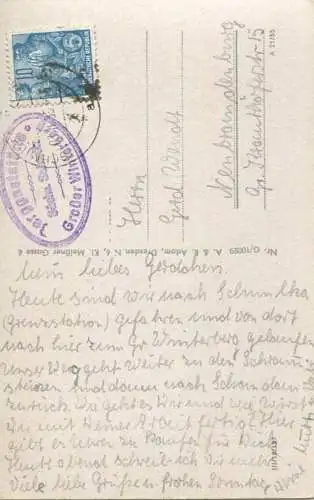 10
Bergg
Großer Winterberg
Herrn
Gerd Wendt
Neubrandenburg
Gr. Krauthöferstr. 15
A 21/55
Nr. G/10089 A. & R. Adam, Dresden N. 6, Kl. Meißner Gasse 4
Mein liebes Gerdchen.
Heute sind wir nach Schmilka
(Grenzstation) gefahren und von dort
nach hier zum Gr. Winterberg gelaufen
Unser Weg geht weiter zu den Schramm-
steinen und dann nach Schandau
zurück. Wie geht es Dir und wie
Du mit Deiner Arbeit fertig? Hier
gibt es
Heute abend schreib ich Dir mehr.
Viele liebe Grüße u. frohen Sonntag
Deine Mutti